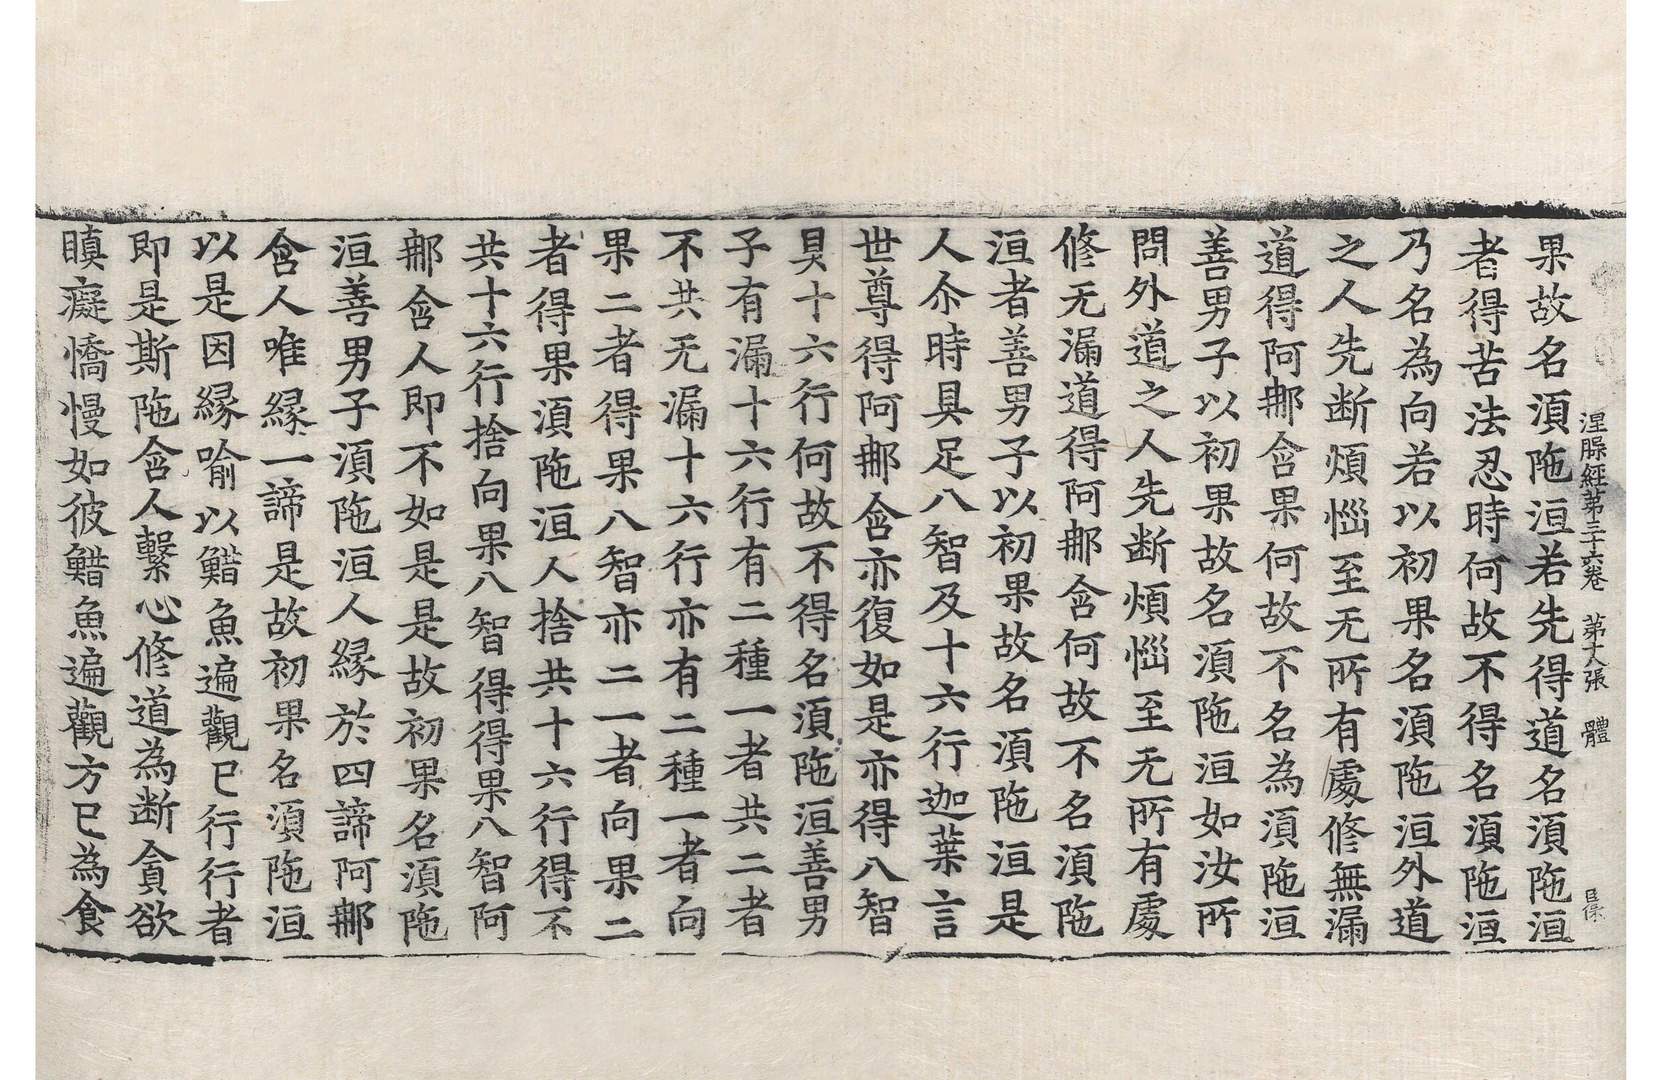 涅槃經第三十六卷 第十八張 體
果故名湏陁洹若先得道名湏陁洹
者得苦法忍時何故不得名湏陁洹
乃名為向若以初果名湏陁洹外道
之人先断煩惱至无所有處修無漏
道得阿那含果何故不名為湏陁洹
善男子以初果故名湏陁洹如汝所
問外道之人先断煩惱至无所有處
修无漏道得阿那含何故不名湏陁
洹者善男子以初果故名湏陁洹是
人尒時具足八智及十六行迦葉言
世尊得阿那含亦復如是亦得八智
具十六行何故不得名湏陁洹善男
子有漏十六行有二種一者共二者
不共无漏十六行亦有二種一者向
果二者得果八智亦二一者向果二
者得果湏陁洹人捨共十六行得不
共十六行捨向果八智得得果八智阿
那含人即不如是是故初果名湏陁
洹善男子湏陁洹人縁於四諦阿那
含人唯縁一諦是故初果名湏陁洹
以是因縁喻以䱜魚遍觀已行行者
即是斯陁含人繫心修道為断貪欲
瞋癡憍慢如彼䱜魚遍觀方已為食